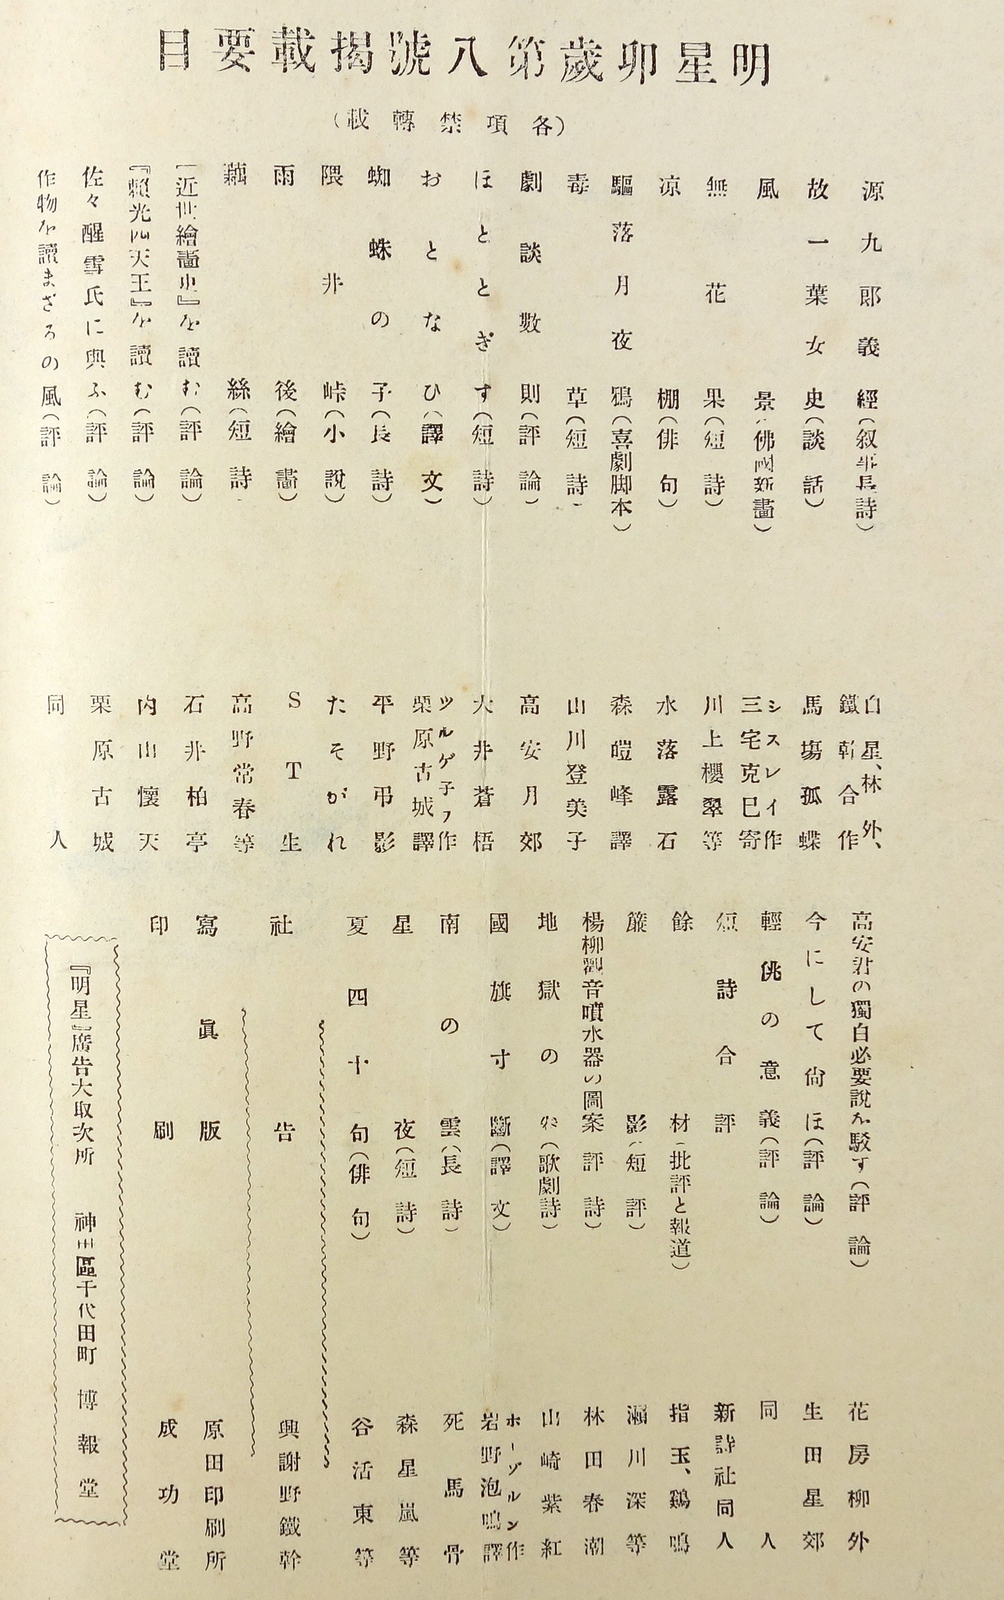 明星卯歲第八號揭載要目
（各項禁轉載）
源九郎義經（叙事長詩） 白星、林外、鐵幹合作
故一葉女史（談話） 馬塲孤蝶
風景（佛國新畫） シスレイ作 三宅克巳寄
無花果（短詩） 川上櫻翠等
凉棚（俳句） 水落露石
驅落月夜鴉（喜劇脚本） 森皚峰譯
毒草（短詩） 山川登美子
劇談數則（評論） 高安月郊
ほととぎす（短詩） 大井蒼梧
おとなひ（譯文） ツルゲ子フ作 栗原古城譯
蜘蛛の子（長詩） 平野弔影
隈井峠（小說） たそがれ
雨後（繪畵） ST生
繭絲（短詩） 高野常春等
『近世繪畵史』を讀む（評論） 石井柏亭
『賴光四天王』を讀む（評論） 内山懷天
佐々醒雪氏に與ふ（評論） 栗原古城
作物を讀まざるの風（評論） 同人
高安君の獨白必要說を駁す（評論） 花房柳外
今にして尙ほ（評論） 生田星郊
輕佻の意義（評論） 同人
短詩合評 新詩社同人
餘材（批評と報道） 指玉、鷄鳴
簾影（短評） 瀨川深等
楊柳觀音噴水器の圖案評（詩） 林田春潮
地獄の（歌劇詩） 山崎紫紅
國旗寸斷（譯文） ホーソルン作 岩野泡鳴譯
南の雲（長詩） 死馬骨
星夜（短詩） 森星嵐等
夏四十句（俳句） 谷活東等
社告 與謝野鐵幹
寫眞版 原田印刷所
印刷 成功堂
『明星』廣告大取次所 神田區千代田町 博報堂